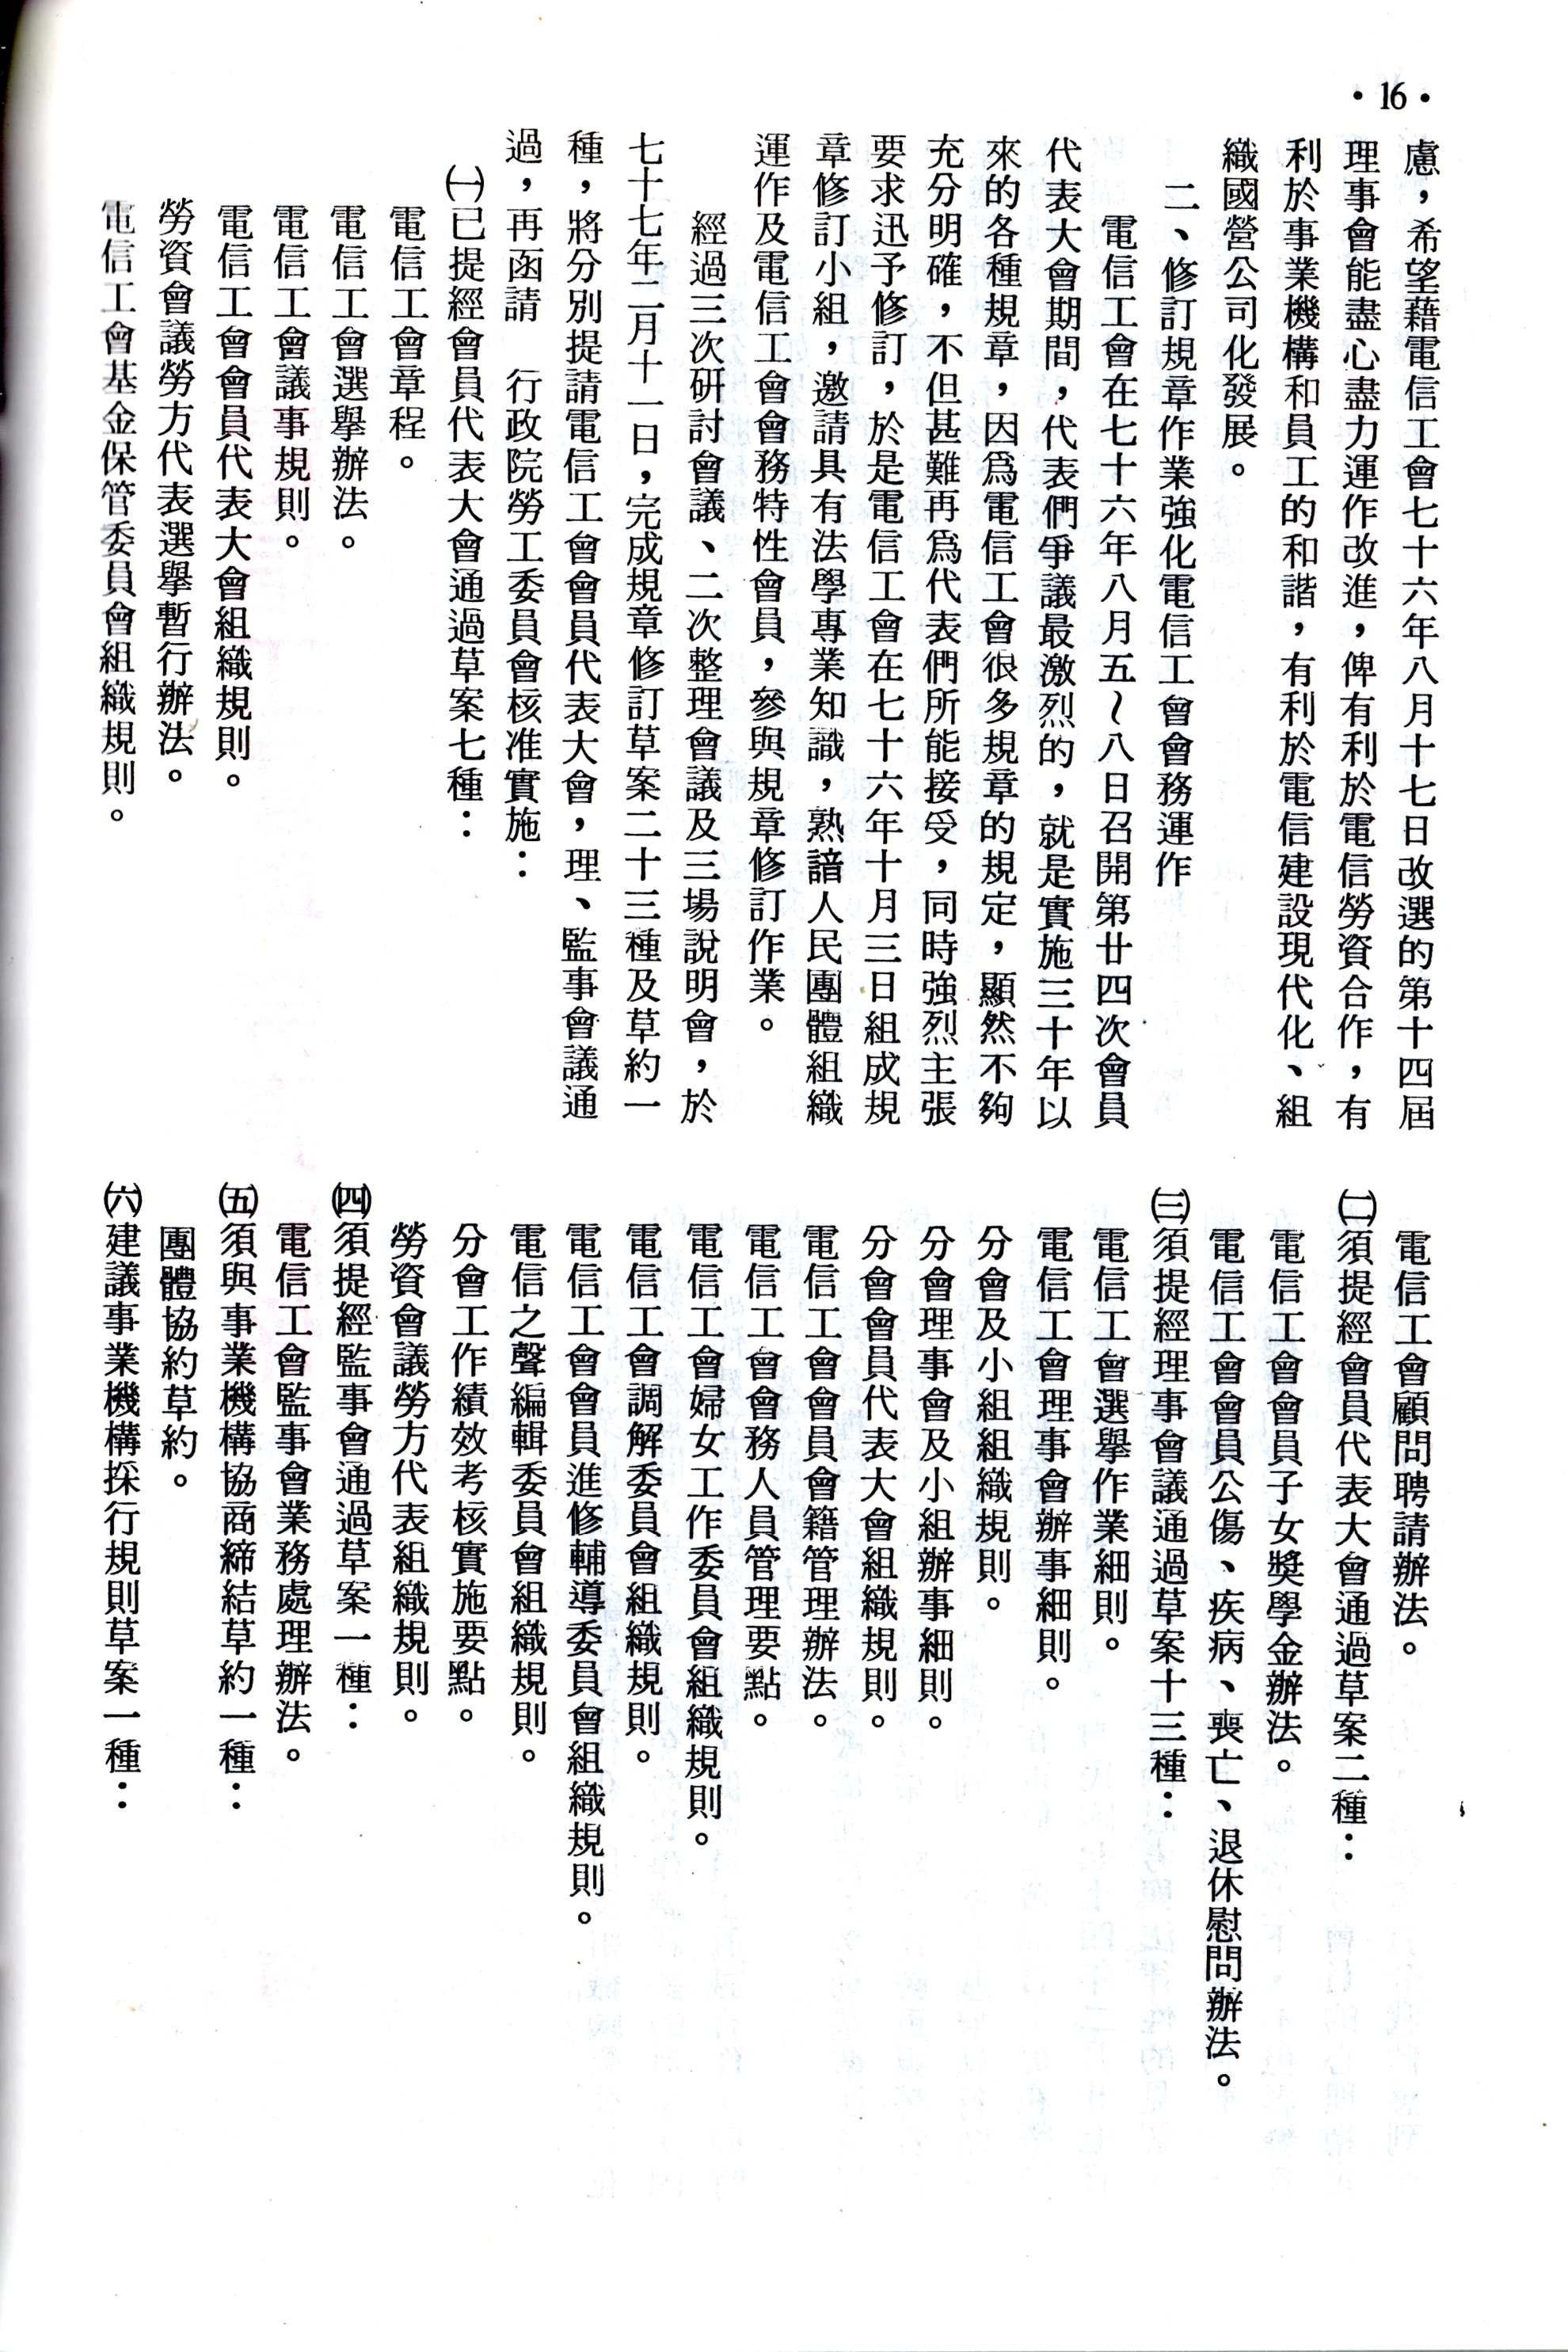 •16•
慮，希望藉電信工會七十六年八月十七日改選的第十四屆
理事會能盡心盡力運作改進，俾有利於電信勞資合作，有
利於事業機構和員工的和諧，有利於電信建設現代化、組
織國營公司化發展。
二、修訂規章作業強化電信工會會務運作
電信工會在七十六年八月五～八日召開第廿四次會員
代表大會期間，代表們爭議最激烈的，就是實施三十年以
來的各種規章，因爲電信工會很多規章的規定，顯然不夠
充分明確，不但甚難再爲代表們所能接受，同時強烈主張
要求迅予修訂，於是電信工會在七十六年十月三日組成規
章修訂小組，邀請具有法學專業知識，熟諳人民團體組織
運作及電信工會會務特性會員，參與規章修訂作業。
經過三次研討會議、二次整理會議及三場說明會，於
七十七年二月十一日，完成規章修訂草案二十三種及草約一
種，將分別提請電信工會會員代表大會，理、監事會議通
過，再函請　行政院勞工委員會核准實施：
㈠已提經會員代表大會通過草案七種：
電信工會章程。
電信工會選舉辦法。
電信工會議事規則。
電信工會會員代表大會組織規則。
勞資會議勞方代表選舉暫行辦法。
電信工會基金保管委員會組織規則。
電信工會顧問聘請辦法。
㈡須提經會員代表大會通過草案二種：
電信工會會員子女獎學金辦法。
電信工會會員公傷、疾病、喪亡、退休慰問辦法。
㈢須提經理事會議通過草案十三種：
電信工會選舉作業細則。
電信工會理事會辦事細則。
分會及小組組織規則。
分會理事會及小組辦事細則。
分會會員代表大會組織規則。
電信工會會員會籍管理辦法。
電信工會會務人員管理要點。
電信工會婦女工作委員會組織規則。
電信工會調解委員會組織規則。
電信工會會員進修輔導委員會組織規則。
電信之聲編輯委員會組織規則。
分會工作績效考核實施要點。
勞資會議勞方代表組織規則。
㈣須提經監事會通過草案一種：
電信工會監事會業務處理辦法。
㈤須與事業機構協商締結草約一種：
團體協約草約。
㈥建議事業機構採行規則草案一種：